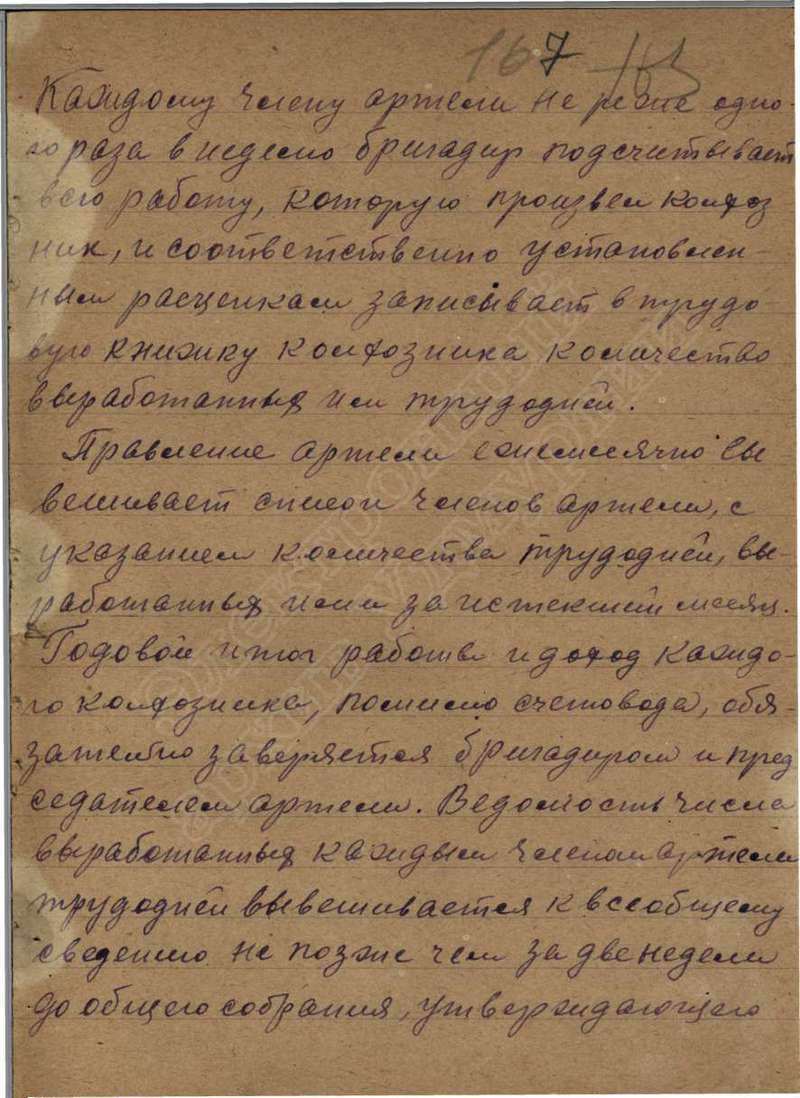 167
Каждому члену артели не реже одно-
го раза в неделю бригадир подсчитывает
всю работу, которую произвел колхоз
ник, и соответственно установлен-
ным расценкам записывает в трудо
вую книжку колхозника количество
выработанных им трудодней.
Правление артели ежемесячно вы
вешивает список членов артели, с
указанием количества трудодней, вы-
работанных ими за истекший месяц.
Годовой итог работы и доход каждо-
го колхозника, помимо счетовода, обя-
зательно заверяется бригадиром и пред
седателем артели. Ведомость числа
выработанных каждым членом артели
трудодней вывешивается к всеобщему
сведению не позже чем за две недели
до общего собрания, утверждающего